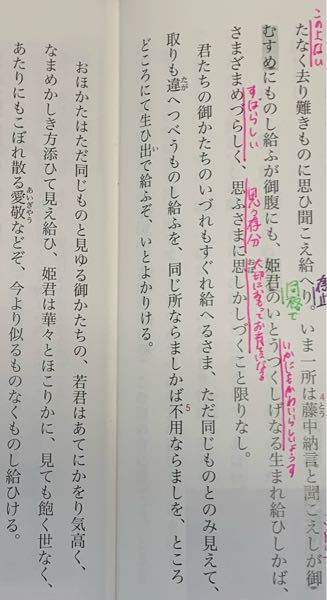 このよない
たなく去り難きものに思ひ聞こえ給へり。いま一所は藤中納言と聞こえしが御
存止
何怒で
4とう
むすめにものし給ふが御腹にも、姫君のいとうつくしげなる生まれ給ひしかば、
いかにもかわいらしいようす
さまざまめづらしく、思ふさまに思しかしづくこと限りなし。
すばらしい
思う存分
おぼ
大切に
君たちの御かたちのいづれもすぐれ給へるさま、ただ同じものとのみ見えて、
取りも違へつべうものし給ふを、同じ所ならましかば不用ならましを、ところ
たが
5
どころにて生ひ出で給ふぞ、いとよかりける。
い
おほかたはただ同じものと見ゆる御かたちの、若君はあてにかをり気高く、
なまめかしき方添ひて見え給ひ、姫君は華々とほこりかに、見ても飽く世なく、
あたりにもこぼれ散る愛敬などぞ、今より似るものなくものし給ひける。
あいぎやう